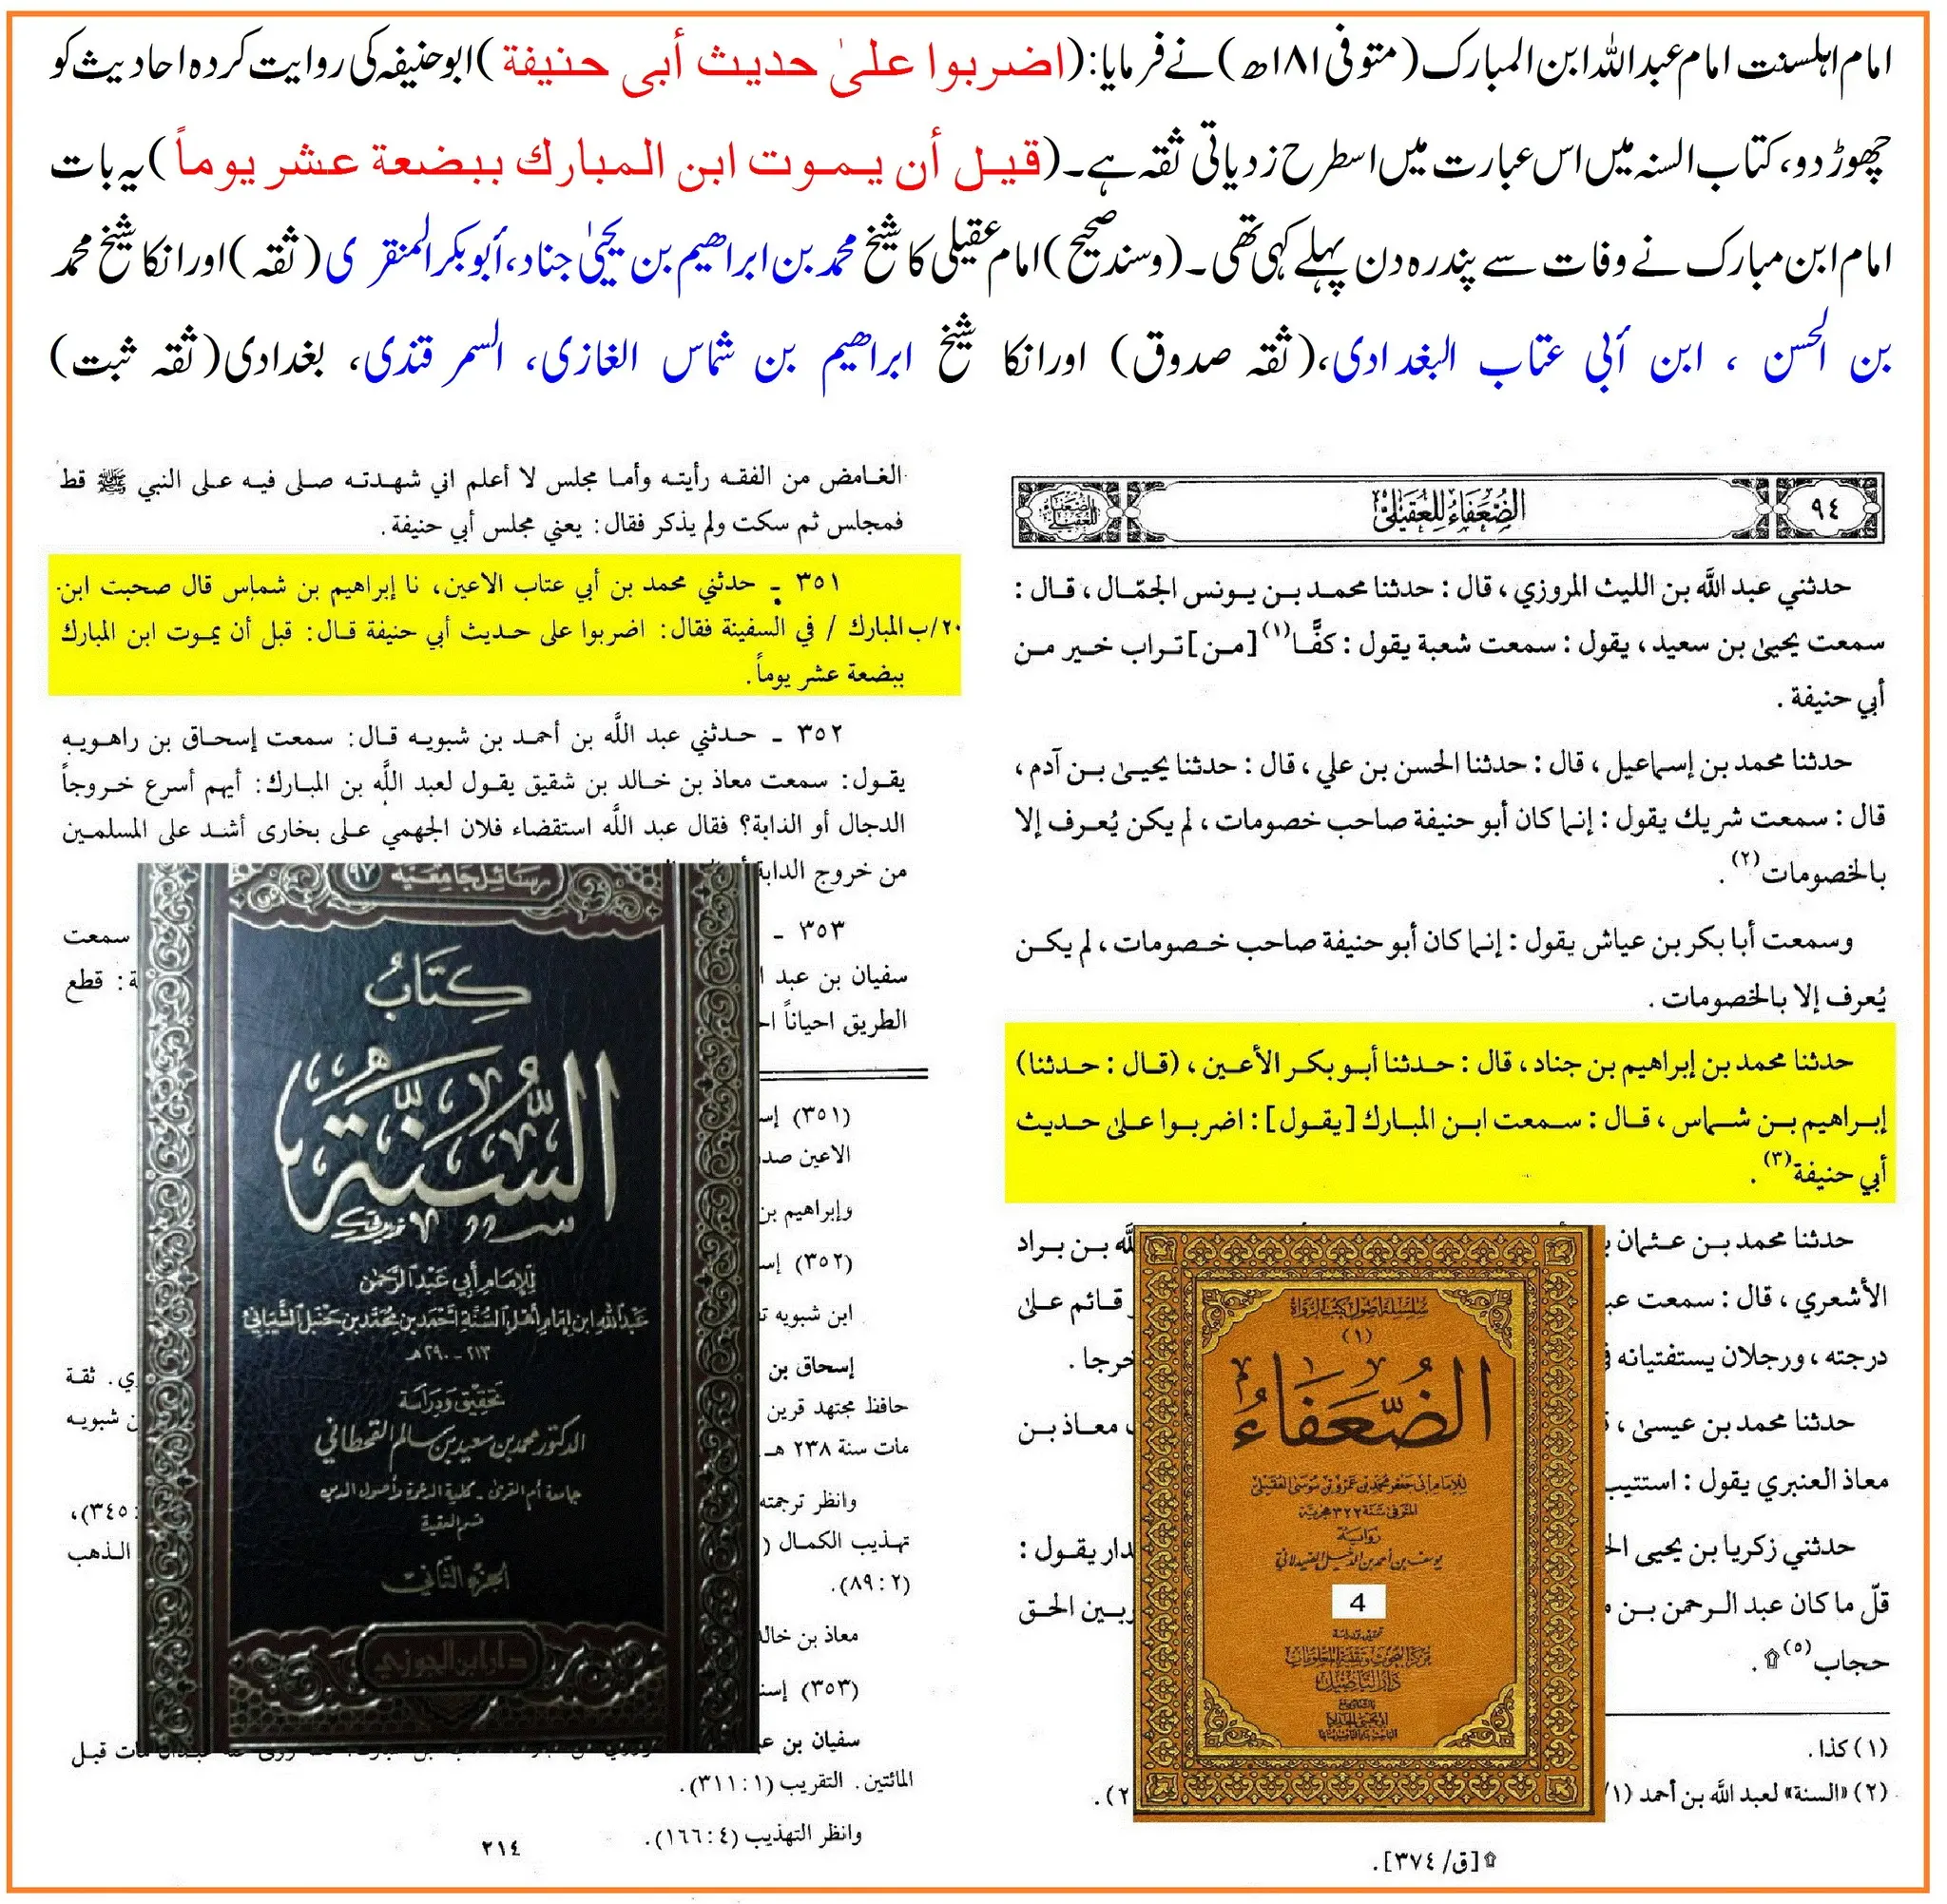 امام اہلسنت امام عبداللہ ابن المبارک (متوفی ۱۸۱ھ) نے فرمایا: (اضربوا علىٰ حديث أبى حنيفة) ابوحنیفہ کی روایت کردہ احادیث کو
چھوڑ دو، کتاب السنہ میں اس عبارت میں اسطرح زدیاتی ثقہ ہے۔ (قيل أن يموت ابن المبارك ببضعة عشر يوماً) یہ بات
امام ابن مبارک نے وفات سے پندرہ دن پہلے کہی تھی۔ (وسندہ صحیح) امام عقیلی کا شیخ محمد بن ابراھیم بن یحییٰ جناد، أبو بکر المنقری (ثقہ) اور انکا شیخ محمد
بن الحسن ، ابن أبی عتاب البغدادی، (ثقہ صدوق) اور انکا شیخ ابراھیم بن شماس الغازی، السمرقندی، بغدادی (ثقہ ثبت)
الضعفاء للعقيلي
٩٤
حدثني عبد الله بن الليث المروزي ، قال : حدثنا محمد بن يونس الجمّال ، قال :
سمعت يحيى بن سعيد ، يقول : سمعت شعبة يقول : كفًّا(١) [من] تراب خير من
أبي حنيفة .
حدثنا محمد بن إسماعيل ، قال : حدثنا الحسن بن علي ، قال : حدثنا يحيى بن آدم ،
قال : سمعت شريك يقول : إنما كان أبو حنيفة صاحب خصومات ، لم يكن يُعرف إلا
بالخصومات(٢) .
وسمعت أبا بكر بن عياش يقول : إنما كان أبو حنيفة صاحب خصومات ، لم يكن
يُعرف إلا بالخصومات .
حدثنا محمد بن إبراهيم بن جناد ، قال : حدثنا أبو بكر الأعين ، (قال : حدثنا)
إبراهيم بن شماس ، قال : سمعت ابن المبارك [يقول] : اضربوا على حديث
أبي حنيفة(٣) .
حدثنا محمد بن عثمان الله بن براد
الأشعري ، قال : سمعت قائم على
درجته ، ورجلان يستفتيانه خرجا .
حدثنا محمد بن عيسى ، معاذ بن
معاذ العنبري يقول : استتيب
حدثني زكريا بن يحيى يقول :
قلّ ما كان عبد الرحمن بن وبين الحق
حجاب(٥) ۩ .
(١) كذا .
(٢) «السنة» لعبد الله بن أحمد (١/
۩ [ق/ ٣٧٤] .
سلسلة أصول كتب الرواة
(١)
الضُّعَفَاءُ
للإمام أبي جعفر محمد بن عمرو بن موسى العقيلي
المتوفى سنة ٣٢٢ هجرية
رواية
يوسف بن أحمد بن الدخيل الصيدلاني
4
تحقيق ودراسة
مركز البحوث وتقنية المعلومات
دار التأصيل
الغامض من الفقه رأيته وأما مجلس لا أعلم اني شهدته صلى فيه على النبي ﷺ قط
فمجلس ثم سكت ولم يذكر فقال: يعني مجلس أبي حنيفة.
٣٥١ - حدثني محمد بن أبي عتاب الاعين، نا إبراهيم بن شماس قال صحبت ابن
٢٠/ب المبارك / في السفينة فقال: اضربوا على حديث أبي حنيفة قال: قبل أن يموت ابن المبارك
ببضعة عشر يوماً.
٣٥٢ - حدثني عبد الله بن أحمد بن شبويه قال: سمعت إسحاق بن راهويه
يقول: سمعت معاذ بن خالد بن شقيق يقول لعبد الله بن المبارك: أيهم أسرع خروجاً
الدجال أو الدابة؟ فقال عبد الله استقضاء فلان الجهمي على بخارى أشد على المسلمين
من خروج الدابة
٣٥٣ - سمعت
سفيان بن عبد قطع
الطريق احياناً
(٣٥١)
الاعين
وإبراهيم بن
(٣٥٢)
ابن شبويه
إسحاق بن ثقة
حافظ مجتهد قرين بن شبويه
مات سنة ٢٣٨ هـ
وانظر ترجمته ٣٤٥)،
تهذيب الكمال الذهب
(٢ : ٨٩).
معاذ بن خالد
(٣٥٣)
سفيان بن مات قبل
المائتين. التقريب (١ : ٣١١).
وانظر التهذيب (٤ : ١٦٦).
٢١٤
رسائل جامعية ٩٧
كتاب
السُّنَّة
للإمام أبي عبد الرحمن
عبد الله ابن إمام أهل السنة أحمد بن محمد بن حنبل الشيباني
٢١٣ - ٢٩٠ هـ
تحقيق ودراسة
الدكتور محمد بن سعيد بن سالم القحطاني
جامعة أم القرى - كلية الدعوة وأصول الدين
قسم العقيدة
الجزء الثاني
دار ابن الجوزي